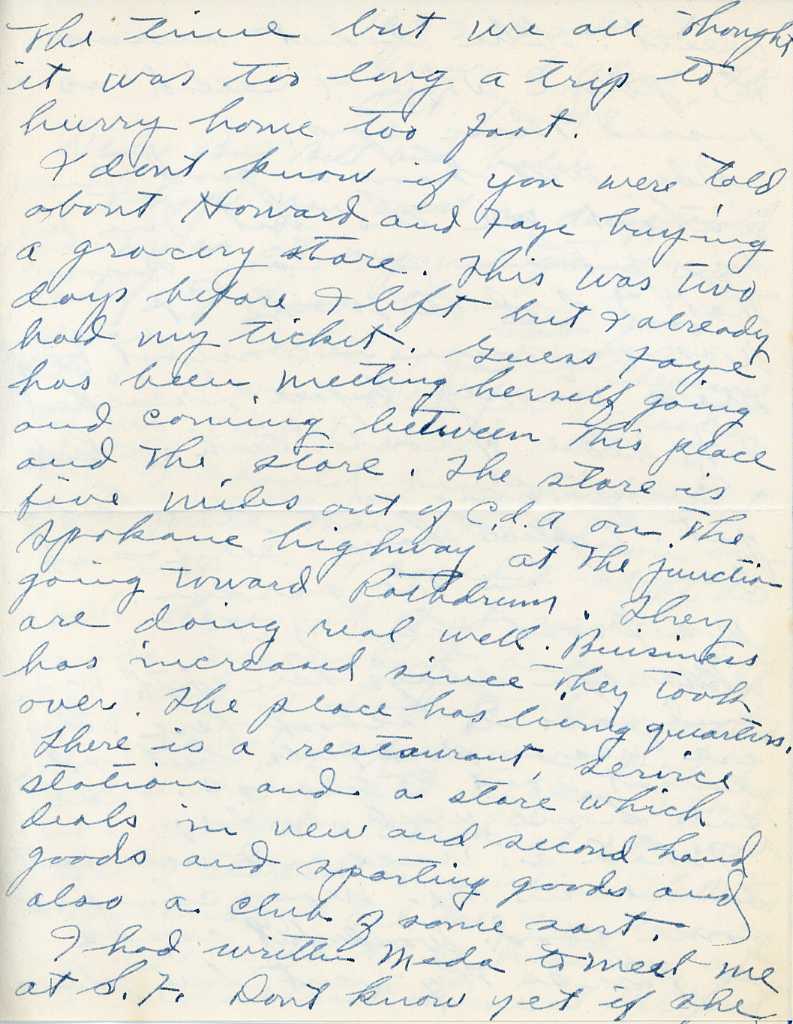 the time but we all thought
it was too long a trip to
hurry home too fast.
I dont know if you were told
about Howard and Faye buying
a grocery store. This was two
days before I left but I already
had my ticket. Guess Faye
has been meeting herself going
and coming between this place
and the store. The store is
five miles out of C.d.A on the
Spokane highway at the junction
going toward Rathdrum. They
are doing real well. Buisiness
has increased since they took
over. The place has living quarters.
There is a restaurant, service
station and a store which
deals in new and second hand
goods and sporting goods and
also a club of some sort.
I had written Meda to meet me
at S.F. Dont know yet if she